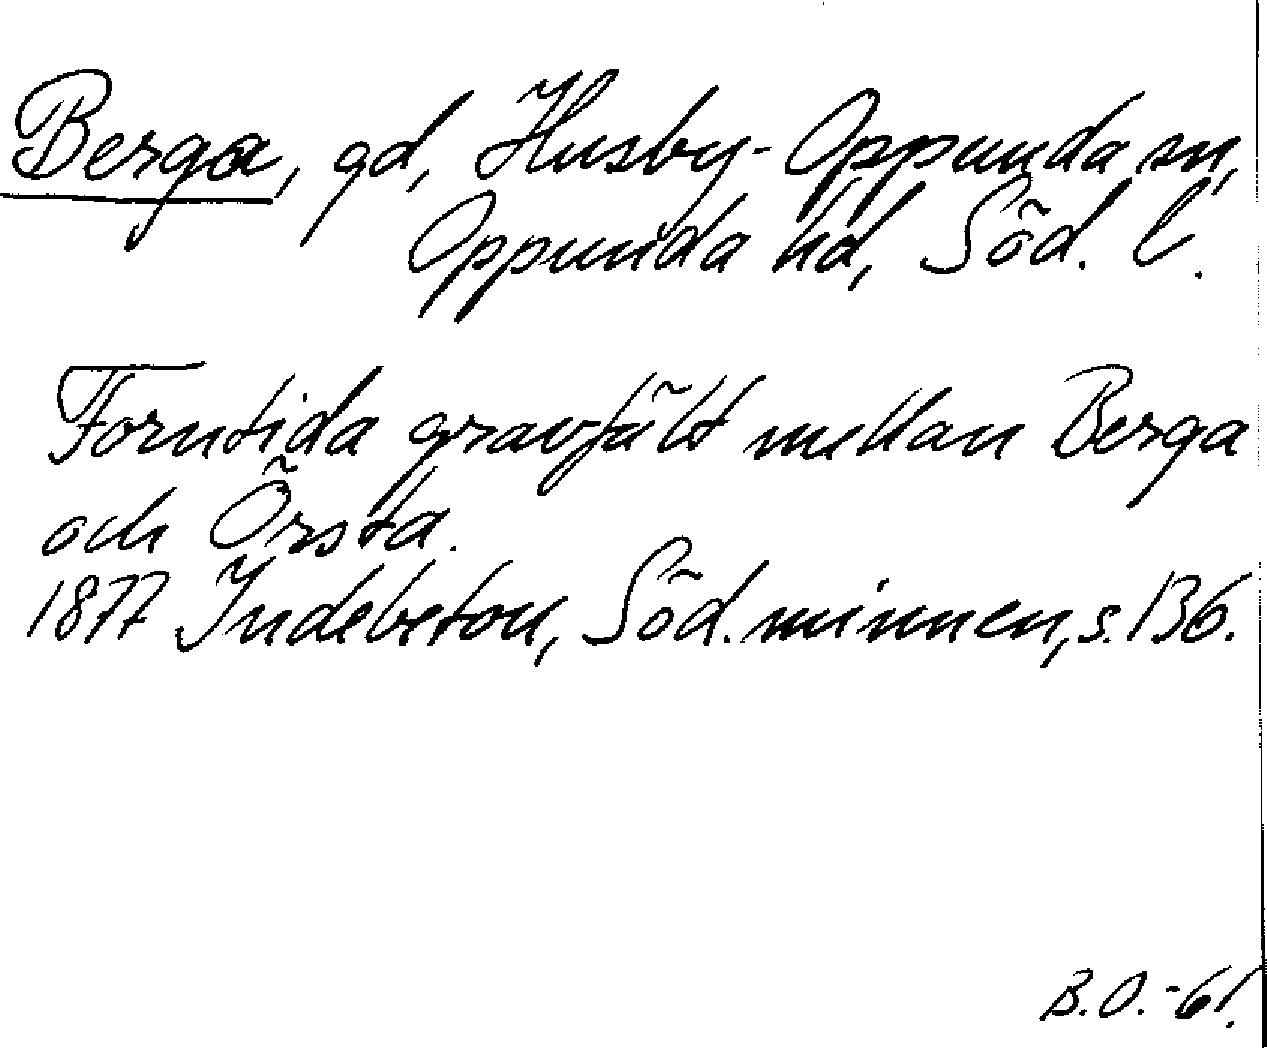 Berga, gd, Husby-Oppunda sn,
Oppunda hd, Söd. l.
Forntida gravfält mellan Berga
och Örsta.
1877 Indebetou, Söd. minnen, s. 136.
B.O.-61.